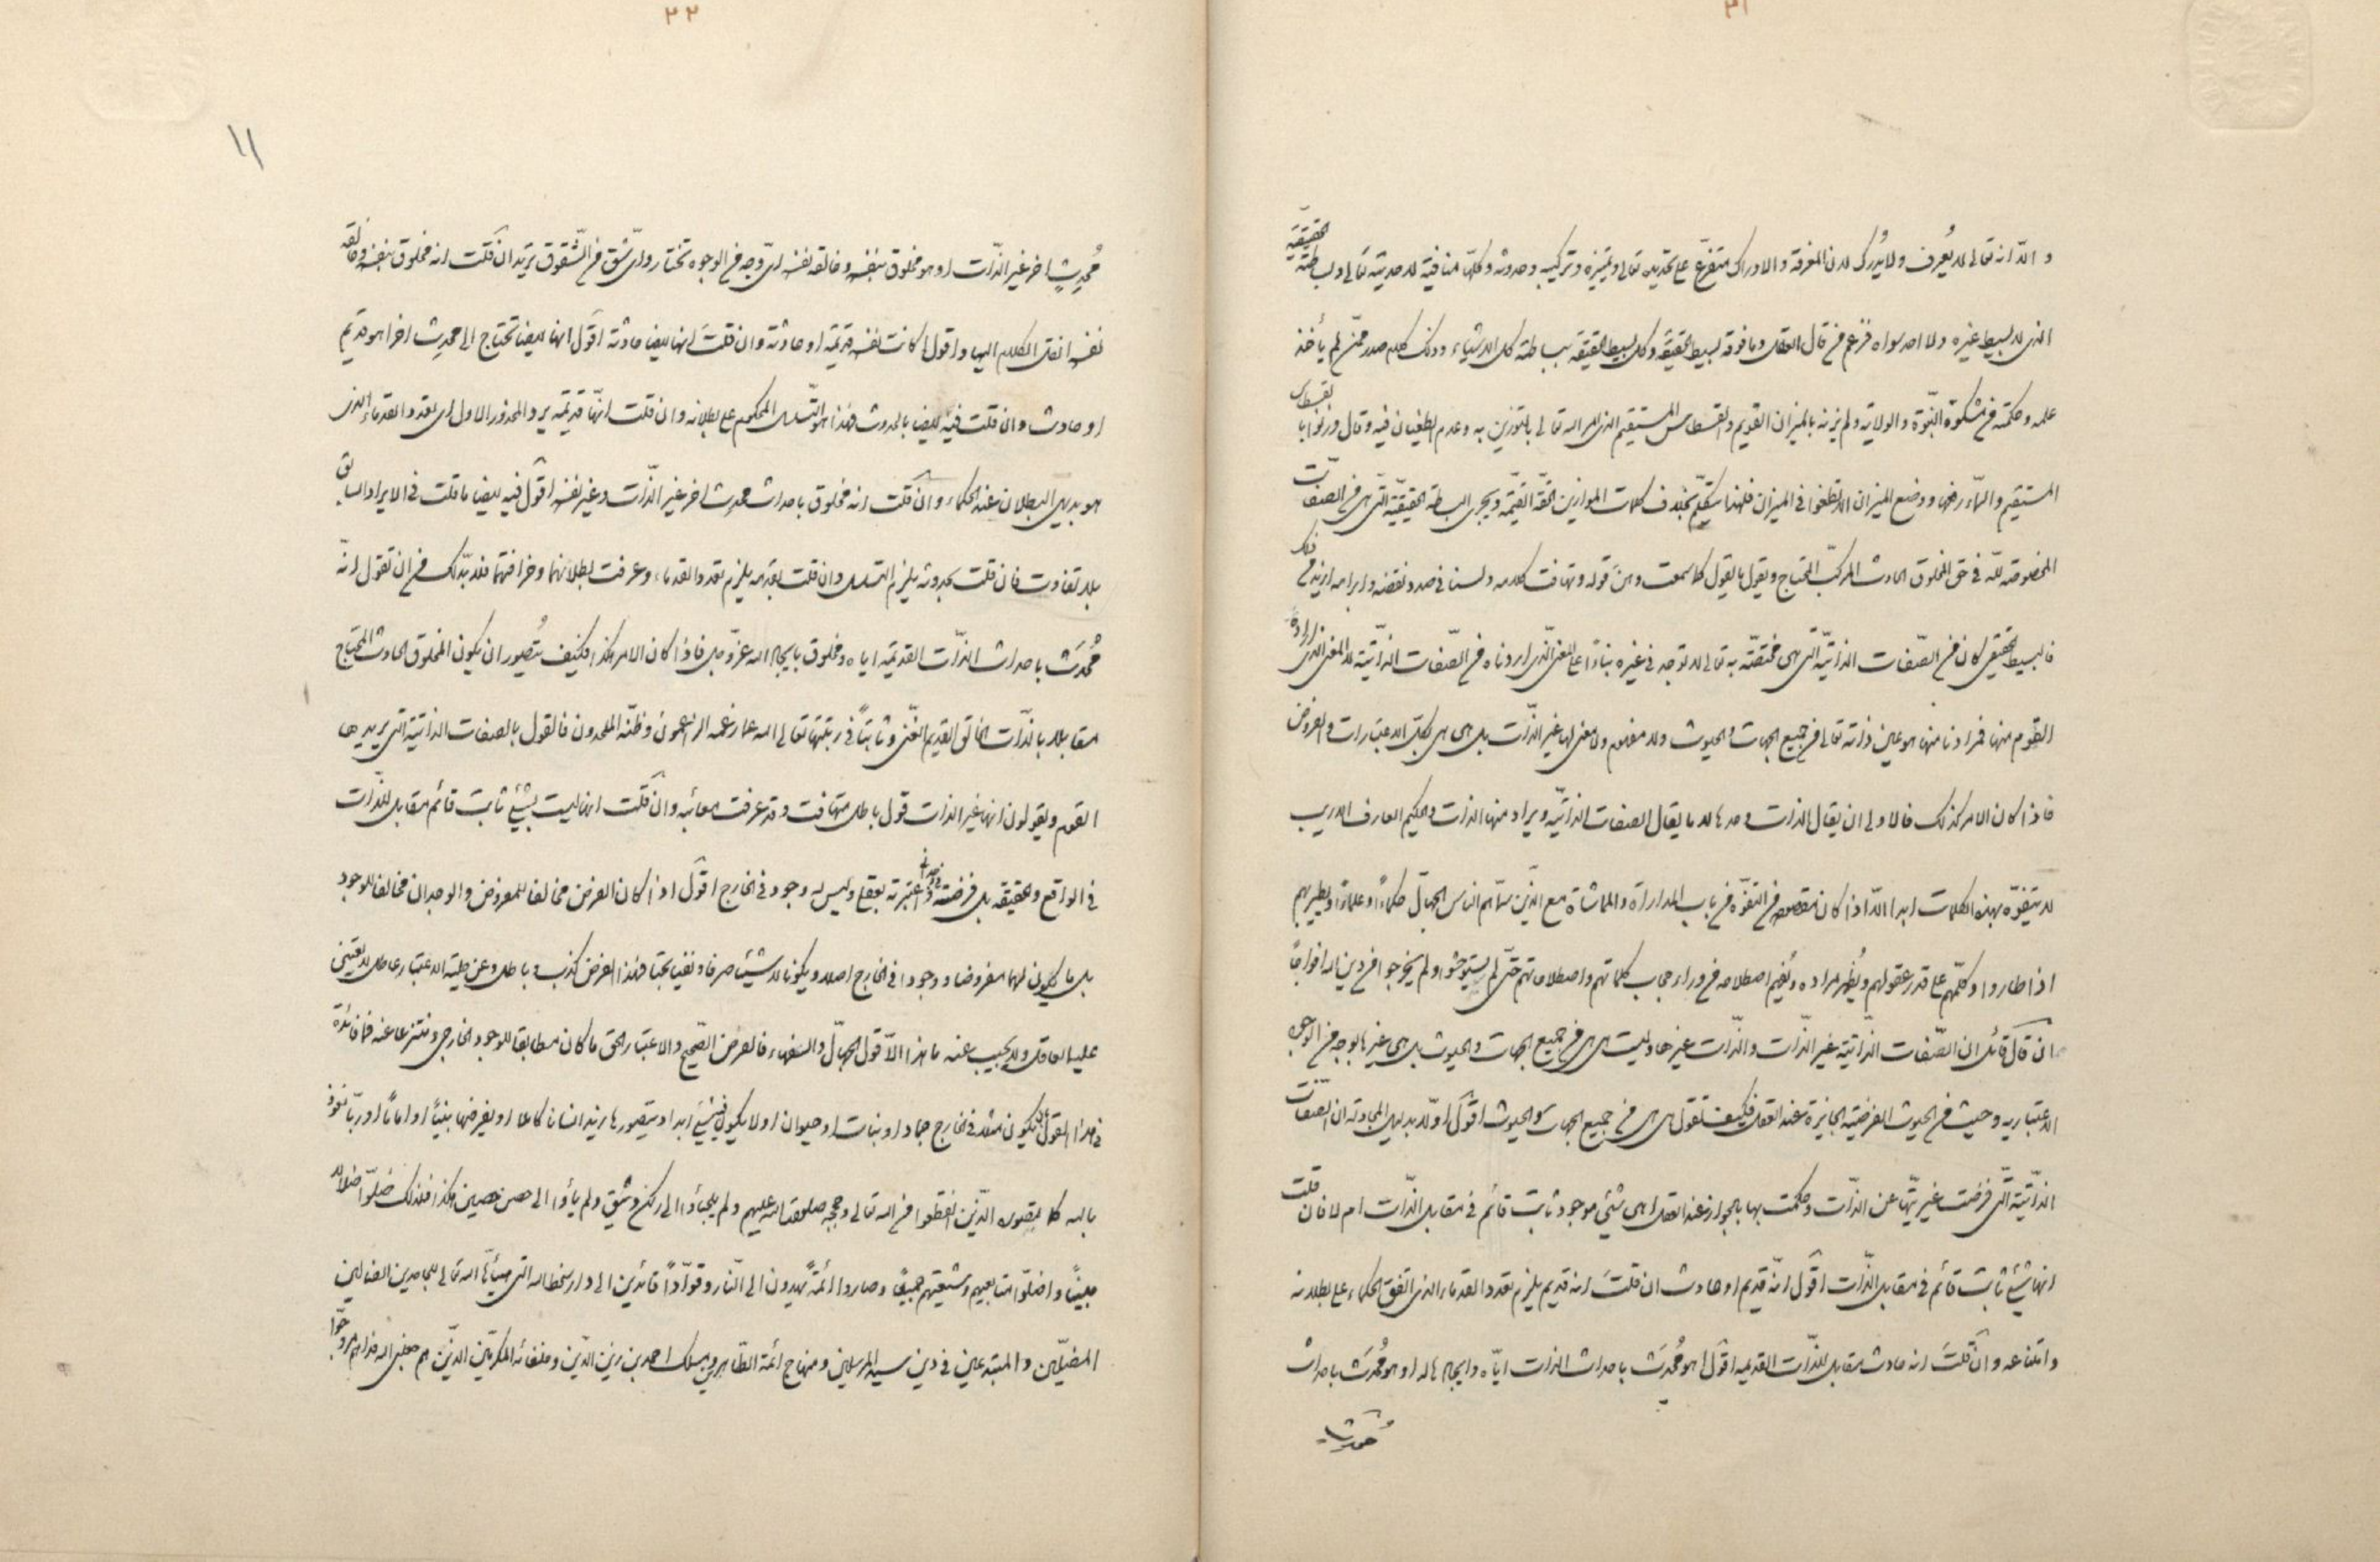 ٢١
و الّا انه تعالى لا يُعرف ولا يُدرك لان المعرفة والادراك متفرّع على تحديده تعالى وتميزه وتركيبه وحدوثه وكلّها منافية لاحديته تعالى وبساطته الحقيقيّة
الذى لا بسيط غيره ولا احد سواه فزعم من قال العقل وما فوقه بسيط الحقيقة وكل بسيط الحقيقة ببساطته كل الاشياء وذلك كلام صدر ممّن لم يأخذ
علمه وحكمته من مشكوة النبّوة والولاية ولم يزنه بالميزان القويم والقسطاس المستقيم الذى امر الله تعالى بالتوزين به وعدم الطغيان فيه وقال وزنوا بالقسطاس
المستقيم والسّماء رفعها ووضع الميزان الا تطغوا فى الميزان فلهذا يتكلّم بخلاف كلمات الموازين الحقّة القيّمة ويجرى البساطة الحقيقيّة التّى هى من الصفات
المخصوصة للّه فى حق المخلوق الحادث المركّب المحتاج ويقول ما يقول كما سمعت وهن قوله وتهافت كلامه ولسنا فى صدد نقضه وابرامه ازيد من ذلك
فالبسيط الحقيقى كان من الصّفات الذاتيّة التّى هى مختصّة به تعالى لا توجد فى غيره بناءً على المعنى الّذى اردناه من الصّفات الذاتيّة لا المعنى الذى اراده
القوم منها فمرادنا منها هو عين ذاته تعالى من جميع الجهات والحيوث ولا مفهوم ولا معنى لها غير الذّات بل هى هى بكلّ الاعتبارات والفروض
فاذا كان الامر كذلك فالاولى ان يقال الذات وحدها لا ما يقال الصفات الذاتيّة ويراد منها الذات والحكيم العارف الاريب
لا يتفوّه بهذه الكلمات ابدا الّا اذا كان مقصوده من التفوّه من باب المداراة والمماشاة مع الذّين سمّاهم الناس الجهال حكماءً او علماءً او يطير بهم
اذا طاروا وكلّمهم على قدر عقولهم ويُظهر مراده ويُفهم اصطلاحه من وراء حجاب كلماتهم واصطلاحاتهم حتّى لم يستوحشوا ولم يخرجوا من دين الله افواجاً
ان قال قائل ان الصّفات الذّاتيّة غير الذّات والذّات غيرها وليست هى هى من جميع الجهات والحيوث بل هى غيرها بوجه من الوجوه
الاعتباريه وحيث من الحيوث الفرضيّة الجائزة عند العقل فكيف تقول هى هى من جميع الجهات والحيوث اقول اوّلا بدليل المجادلة ان الصفات
الذّاتيّة الّتى فرضت غيريّتها عن الذّات وحكمت بها بالجواز عند العقل اهى شئ موجود ثابت قائم فى مقابل الذّات ام لا فان قلت
انها شئ ثابت قائم فى مقابل الذّات اقول انّه قديم او حادث ان قلتَ انه قديم يلزم تعدد القدماء الذى اتفق الحكماء على بطلانه
وامتناعه وان قلتَ انه حادث مقابل للذّات القديمه اقول اهو مُحدَث باحداث الذات ايّاه وايجادها له او هو مُحدَث باحداث
مُحدِث
٢٢
١١
مُحدِثٍ اخر غير الذّات او هو مخلوق بنفسه وخالقه نفسه اىّ وجه من الوجوه تختار واىّ شق من الشّقوق تريد ان قلت انه مخلوق بنفسه وخالقه
نفسه انقل الكلام اليها واقول اكانت نفسه قديمة او حادثة وان قلتَ انها ايضا حادثة اقول انها ايضا تحتاج الى محدِث اخر اهو قديم
او حادث وان قلت فيه ايضا بالحدوث فهذا هو التّسلسل المحكوم على بطلانه وان قلت انّها قديمة يرد المحذور الاول اى تعدد القدماء الذى
هو بديهى البطلان عند الحكماء وان قلت انه مخلوق باحداث محدِث اخر غير الذّات وغير نفسه اقول فيه ايضا ما قلت فى الايراد السابق
بلا تفاوت فان قلت بحدوثه يلزم التسلسل وان قلت بقدمه يلزم تعدد القدماء وعرفت بطلانهما وخرافتهما فلا بدّ لك من ان تقول انّه
مُحدَث باحداث الذّات القديمة اياه ومخلوق بايجاد الله عزّ وجل فاذا كان الامر هكذا فكيف يُتصور ان يكون المخلوق الحادث المحتاج
مقابلا بالذّات الخالق القديم الغنّى وثابتاً فى رتبتها تعالى الله عما زعمه الزاعمون وظنّه الملحدون فالقول بالصفات الذاتيّة التى يريدها
القوم ويقولون انها غير الذات قول باطل متهافت وقد عرفت معائبه وان قلت انها ليست بشئ ثابت قائم مقابل للذّات
فى الواقع والحقيقه بل فرضته واعتبرته بعقلى وليس له وجود فى الخارج اقول اذا كان الفرض مخالفا للمفروض والوجدان مخالفا للوجود
بل ما يكون لهما مفروضا ووجودا فى الخارج اصلا ويكونا لا شيئا صرفا ونفيا بحتا فهذا الفرض كذب وباطل وعن حلية الاعتبار عاطل لا يعتنى
عليه العاقل ولا يجيب عنه ما هذا الاّ قول الجهّال والسّفهاء فالفرض الصّحيح والاعتبار الحق ما كان مطابقا للوجود الخارجى ومنتزعا عنه فما فائدة
فى هذا القول ان يكون مثلا فى الخارج جماد او نبات او حيوان او لا يكون فيه شئ ابدا ويتصورها زيد انسانا كاملا او يفرضها نبيّاً او اماماً او ربّاً نعوذ
بالله كما يتصوره الذّين انقطعوا من الله تعالى وحججه صلوات الله عليهم ولم يلجأوا الى ركن وثيق ولم يأووا الى حصن حصين هكذا فلذلك ضلّوا ضلالا
مبيناً واضلّوا متابعيهم وشيعتهم جميعًا وصاروا ائمّةً يهدون الى النّار وقوّاداً قائدين الى دار سخط الله التى هيأها الله تعالى للجاحدين الضالين
المضلّين والمبتدعين فى دين سيد المرسلين ومنهاج ائمة الطّاهرين ومسلك احمد بن زين الدّين وخلفائه المكرمّين الذّين هم جعلنى الله فداهم روّجوا